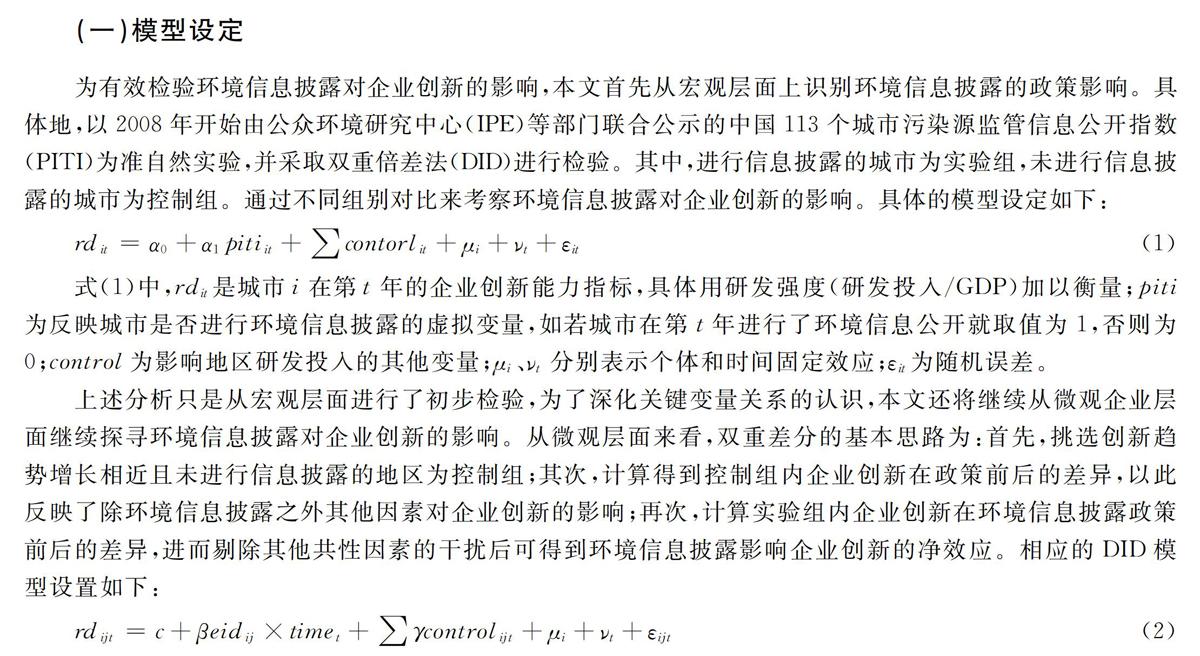 (一)模型设定
为有效检验环境信息披露对企业创新的影响,本文首先从宏观层面上识别环境信息披露的政策影响。具
体地,以 2008 年开始由公众环境研究中心(IPE)等部门联合公示的中国 113 个城市污染源监管信息公开指数
(PITI)为准自然实验,并采取双重倍差法(DID)进行检验。其中,进行信息披露的城市为实验组,未进行信息披
露的城市为控制组。通过不同组别对比来考察环境信息披露对企业创新的影响。具体的模型设定如下:
rd_it = α_0 + α_1 piti_it + ∑contorl_it + μ_i + ν_t + ε_it (1)
式(1)中,rd_it 是城市 i 在第 t 年的企业创新能力指标,具体用研发强度(研发投入/GDP)加以衡量;piti
为反映城市是否进行环境信息披露的虚拟变量,如若城市在第 t 年进行了环境信息公开就取值为 1,否则为
0;control 为影响地区研发投入的其他变量;μ_i、ν_t 分别表示个体和时间固定效应;ε_it 为随机误差。
上述分析只是从宏观层面进行了初步检验,为了深化关键变量关系的认识,本文还将继续从微观企业层
面继续探寻环境信息披露对企业创新的影响。从微观层面来看,双重差分的基本思路为:首先,挑选创新趋
势增长相近且未进行信息披露的地区为控制组;其次,计算得到控制组内企业创新在政策前后的差异,以此
反映了除环境信息披露之外其他因素对企业创新的影响;再次,计算实验组内企业创新在环境信息披露政策
前后的差异,进而剔除其他共性因素的干扰后可得到环境信息披露影响企业创新的净效应。相应的 DID 模
型设置如下:
rd_ijt = c + βeid_ij × time_t + ∑γcontrol_ijt + μ_i + ν_t + ε_ijt (2)